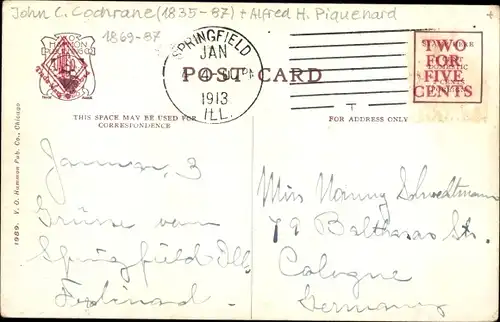 John C. Cochrane (1835-87) + Alfred H. Piquenard
1869-87
SPRINGFIELD
JAN
4
1913
ILL.
POST CARD
TWO
FOR
FIVE
CENTS
THIS SPACE MAY BE USED FOR
CORRESPONDENCE
FOR ADDRESS ONLY
1989. V. O. Hammon Pub. Co., Chicago
Januar 3
Grüsse vom
Springfield Ill.
Ferdinand
Miss Nanny
79 Balthasar Str.
Cologne
Germany